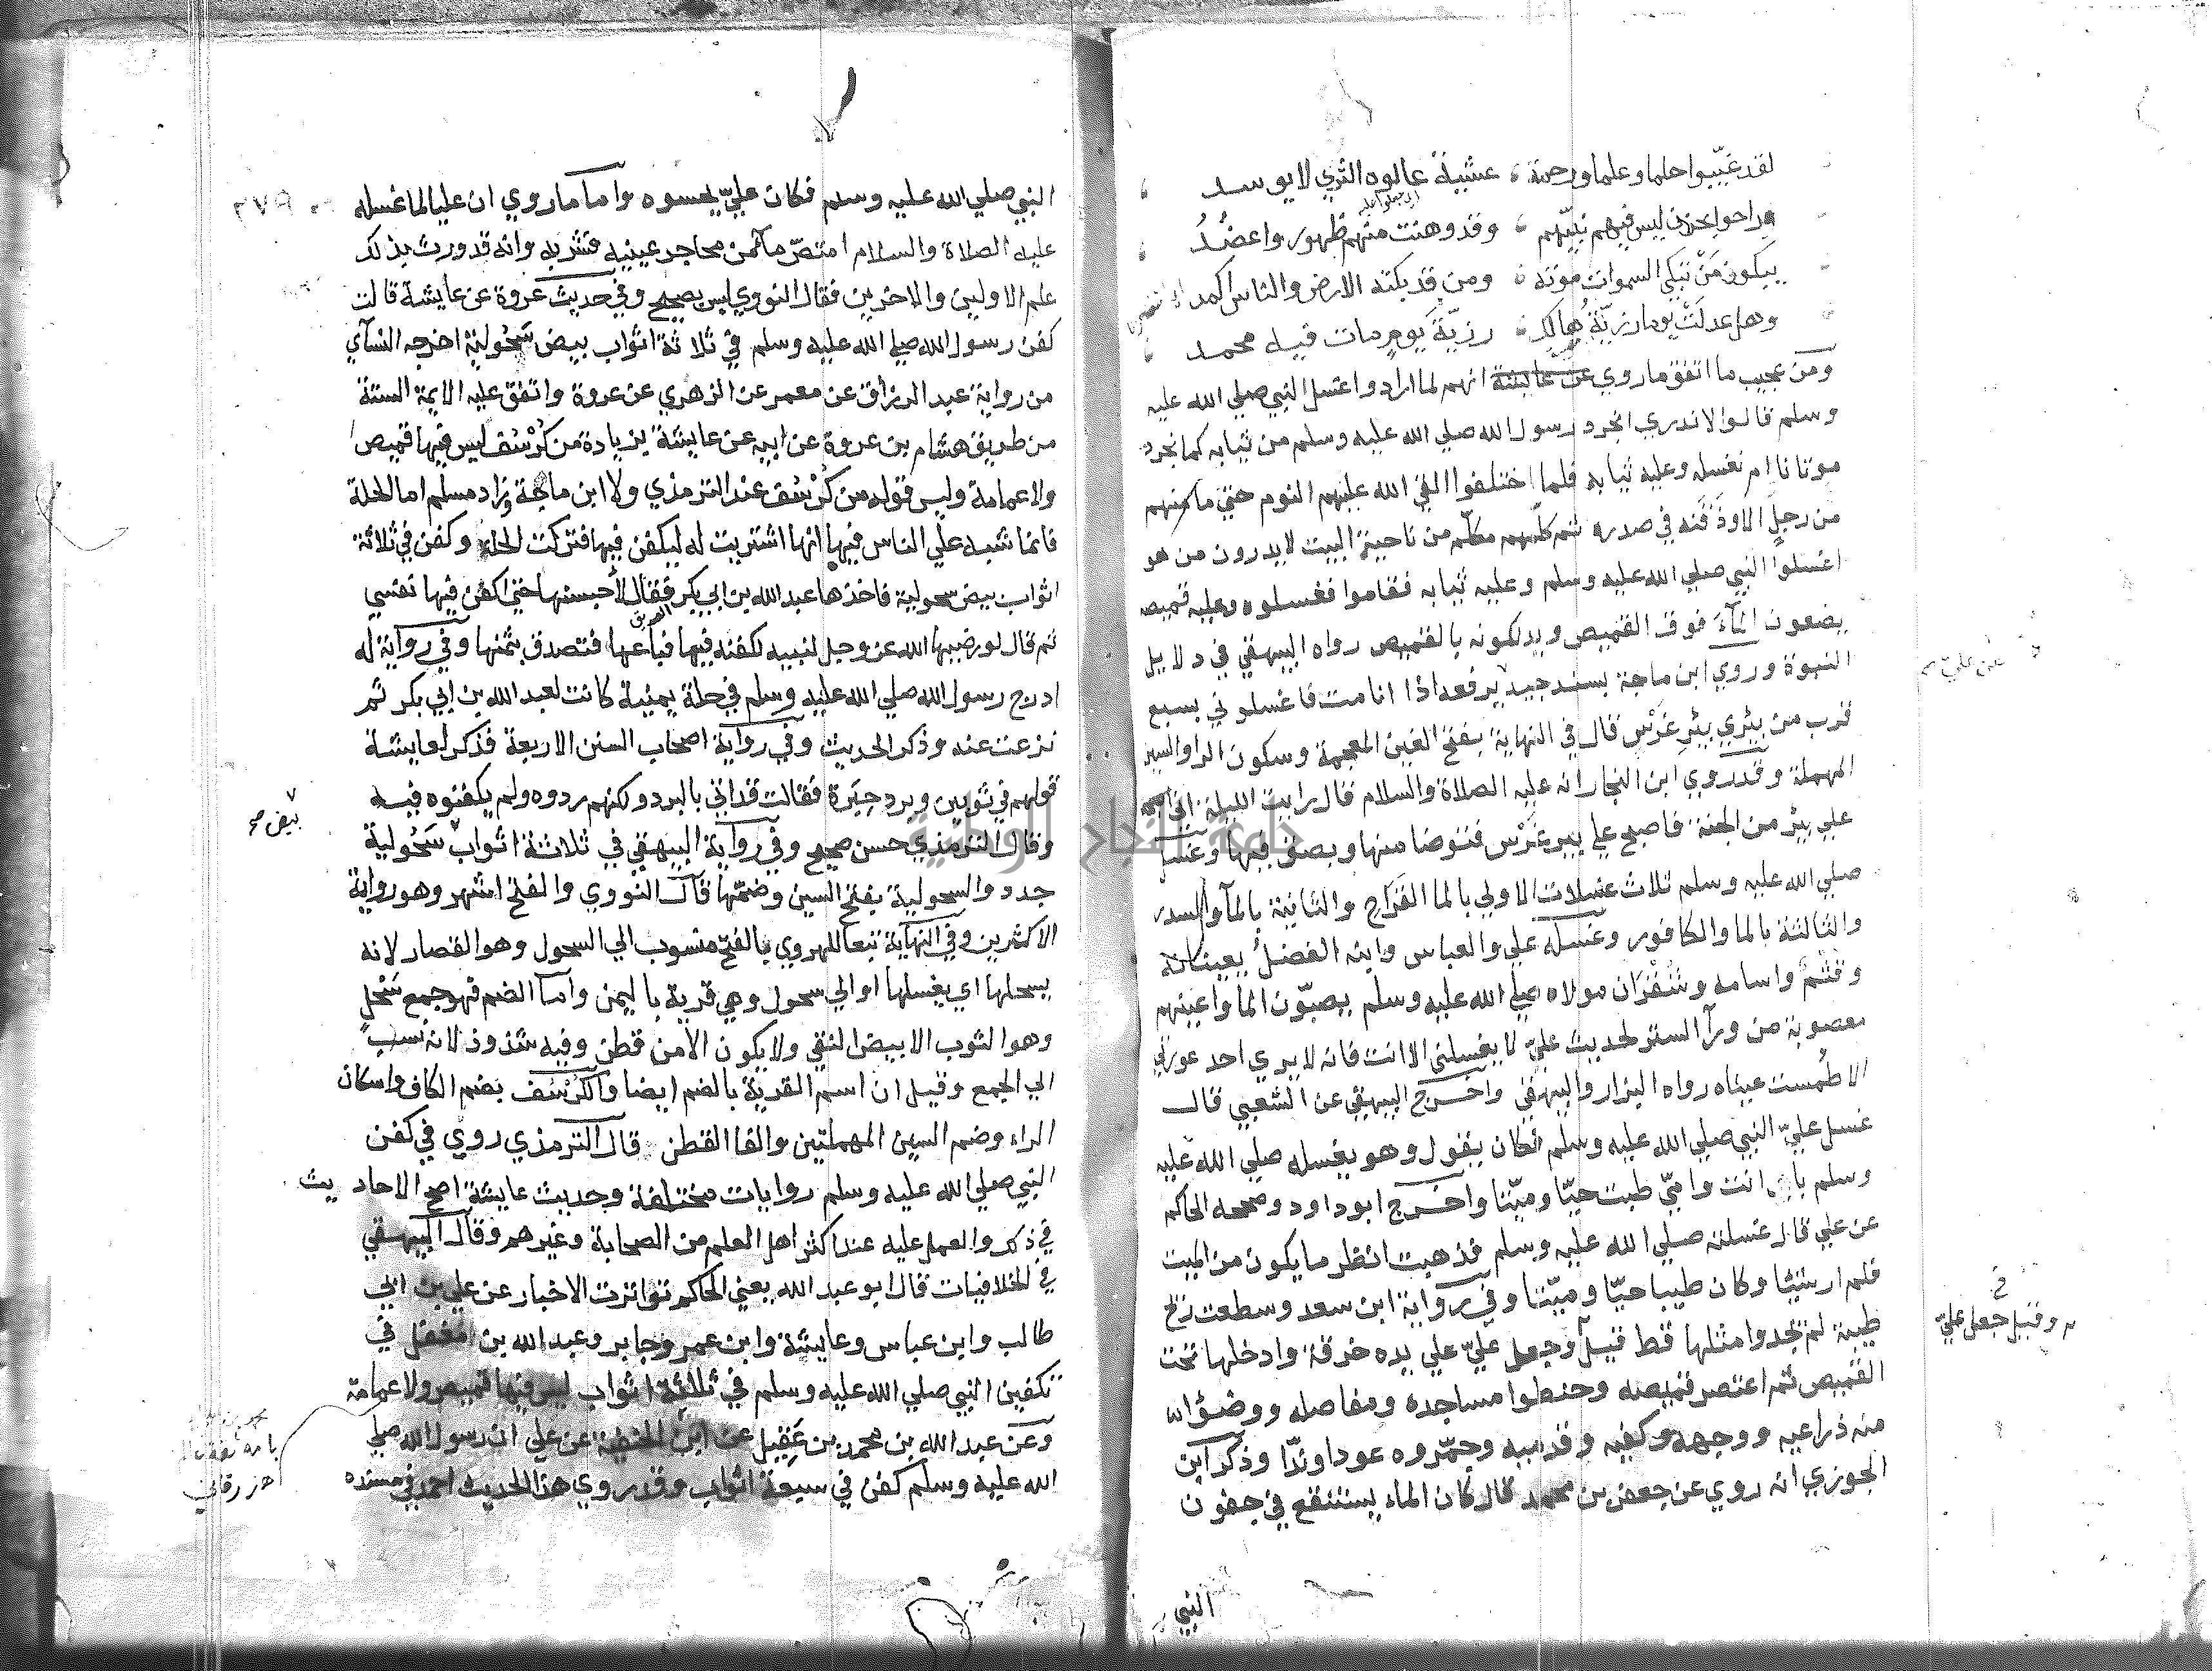 لقد غيّبوا حلما وعلما ورحمة عشية عالوه الثري لا يوسد
وراحوا بحزن ليس فيهم نبيّهم وقد وهنت منهم ظهور واعضُدُ
يبكون مَنْ تبكي السموات موته ومن قد بكته الارض والناس اكمد
وهل عدلَتْ يوما رزيّة هالك رزيّة يوم مات فيه محمد
ومن عجيب ما اتفق ما روي عن عايشة انهم لما ارادوا غسل النبي صلي الله عليه
وسلم قالوا لا ندري انجرد رسول الله صلي الله عليه وسلم من ثيابه كما نجرد
موتانا ام نغسله وعليه ثيابه فلما اختلفوا القي الله عليهم النوم حتي ما منهم
من رجل الا وذقنه في صدره ثم كلّمهم مكلّم من ناحية البيت لا يدرون من هو
اغسلوا النبي صلي الله عليه وسلم وعليه ثيابه فقاموا فغسلوه وعليه قميصه
يضعون المآء فوق القميص ويدلكونه بالقميص رواه البيهقي في دلايل
النبوة وروي ابن ماجة بسند جيد يرفعه اذا انا مت فاغسلوني بسبع
قرب من بيري بير غَرْس قال في النهاية بفتح الغين المعجمة وسكون الرا والسين
المهملة وقد روي ابن النجار انه عليه الصلاة والسلام قال رايت الليلة اني اصبحت
علي بير من الجنة فاصبح علي بير غَرْس فتوضا منها وبصق فيها وغسل
صلي الله عليه وسلم ثلاث غسلات الاولي بالما القَرَاح والثانية بالمآ والسدر
والثالثة بالما والكافور وغسله علي والعباس وابنه الفضل يعينانه
وقثَم واسامه وشُقْرَان مولاه صلي الله عليه وسلم يصبّون الما واعينهم
معصوبة من ورآ الستر لحديث عليّ لا يغسلني الا انت فانه لا يري احد عورتي
الا طُمست عيناه رواه البزار والبيهقي واخرج البيهقي عن الشعبي قال
غسل عليّ النبي صلي الله عليه وسلم فكان يقول وهو يغسله صلي الله عليه
وسلم بابي انت وامّي طبت حيّا وميّتا واخرج ابو داود وصححه الحاكم
عن علي قال غسلته صلي الله عليه وسلم فذهبت انظر ما يكون من الميت
فلم ار شيئا وكان طيبا حيّا وميّتا وفي رواية ابن سعد وسطعت ريح
طيبة لم نجدوا مثلها قط قيل وجعل عليّ علي يده خرقة وادخلها تحت
القميص ثم اعتصر قميصه وحنطوا مساجده ومفاصله ووضّؤا
منه ذراعيه ووجهه وكفيه وقدميه وجمّروه عودا وندّا وذكر ابن
الجوزي انه روي عن جعفر بن محمد قال كان الماء يستنقع في جفون
النبي
وقيل جعل عليّ
النبي صلي الله عليه وسلم فكان عليّ يحسوه واما ما روي ان عليا لما غسله
عليه الصلاة والسلام امتصّ ما من محاجر عينيه فشربه وانه قد ورث بذلك
علم الاولين والاخرين فقال النووي ليس بصحيح وفي حديث عروة عن عايشة قالت
كفن رسول الله صلي الله عليه وسلم في ثلاثة اثواب بيض سَحُولية اخرجه النسآي
من رواية عبد الرزاق عن معمر عن الزهري عن عروة واتفق عليه الايمة الستة
من طريق هشام بن عروة عن ابيه عن عايشة بزيادة من كُرْسُف ليس فيها قميص
ولا عمامة وليس قوله من كُرْسُف عند الترمذي ولا ابن ماجة وزاد مسلم اما الحلة
فانما شبه علي الناس فيها انها اشتريت له ليكفن فيها فتركت الحلة وكفن في ثلاثة
اثواب بيض سحولية فاخذها عبد الله بن ابي بكر فقال لاحبسنها حتي اكفن فيها نفسي
ثم قال لو رضيها الله عز وجل لنبيه لكفنه فيها فباعها فتصدق بثمنها وفي رواية له
ادرج رسول الله صلي الله عليه وسلم في حلة يمنية كانت لعبد الله بن ابي بكر ثم
نزعت عنه وذكر الحديث وفي رواية اصحاب السنن الاربعة فذكر لعايشة
قولهم في ثوبين وبرد حِبَرة فقالت قد اتي بالبرد ولكنهم ردوه ولم يكفنوه فيه
وقال الترمذي حسن صحيح وفي رواية البيهقي في ثلاثة اثواب سَحُولية
بيض صح
جدد والسحولية بفتح السين وضمّها قال النووي والفتح اشهر وهو رواية
الاكثرين وفي النهاية تبعا للهروي بالفتح منسوب الي السحول وهو القصار لانه
يسحلها اي يغسلها او الي سحول وهي قرية باليمن واما الضم فهو جمع سَحْل
وهو الثوب الابيض النقي ولا يكون الا من قطن وفيه شذوذ لانه نسب
الي الجمع وقيل ان اسم القرية بالضم ايضا والكُرْسُف بضم الكاف واسكان
الراء وضم السين المهملتين والفا القطن قال الترمذي روي في كفن
النبي صلي الله عليه وسلم روايات مختلفة وحديث عايشة اصح الاحاديث
في ذلك والعمل عليه عند اكثر اهل العلم من الصحابة وغيرهم وقال البيهقي
في الخلافيات قال ابو عبد الله يعني الحاكم تواترت الاخبار عن علي بن ابي
طالب وابن عباس وعايشة وابن عمر وجابر وعبد الله بن مغفل في
تكفين النبي صلي الله عليه وسلم في ثلاثة اثواب ليس فيها قميص ولا عمامة
وعن عبد الله بن محمد بن عَقِيل عن ابن الحنفية عن علي ان رسول الله صلي
الله عليه وسلم كفن في سبعة اثواب وقد روي هذا الحديث احمد في مسنده
جامعة النجاح الوطنية